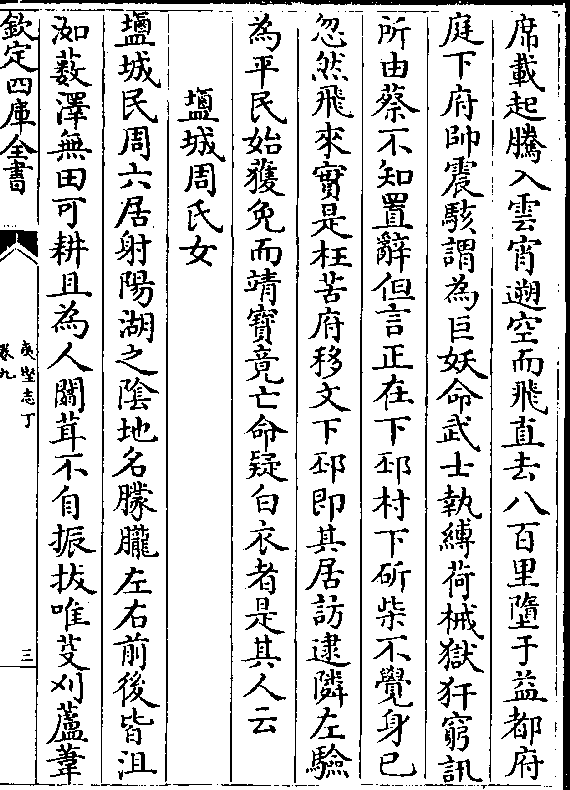 席載起騰入雲宵遡空而飛直去八百里墮于益都府
庭下府帥震駭謂為巨妖命武士執縛荷械獄犴窮訊
所由蔡不知置辭但言正在下邳村下斫柴不覺身已
忽然飛來實是枉苦府移文下邳即其居訪逮隣左驗
為平民始獲免而靖寶竟亡命疑白衣者是其人云
塩城周氏女
塩城民周六居射陽湖之陰地名朦朧左右前後皆沮
洳藪澤無田可耕且為人闒茸不自振拔唯芟刈蘆葦
欽定四庫全書
夷堅志丁
卷九
三